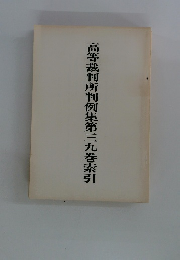 高等裁判所判例集第三九巻索引